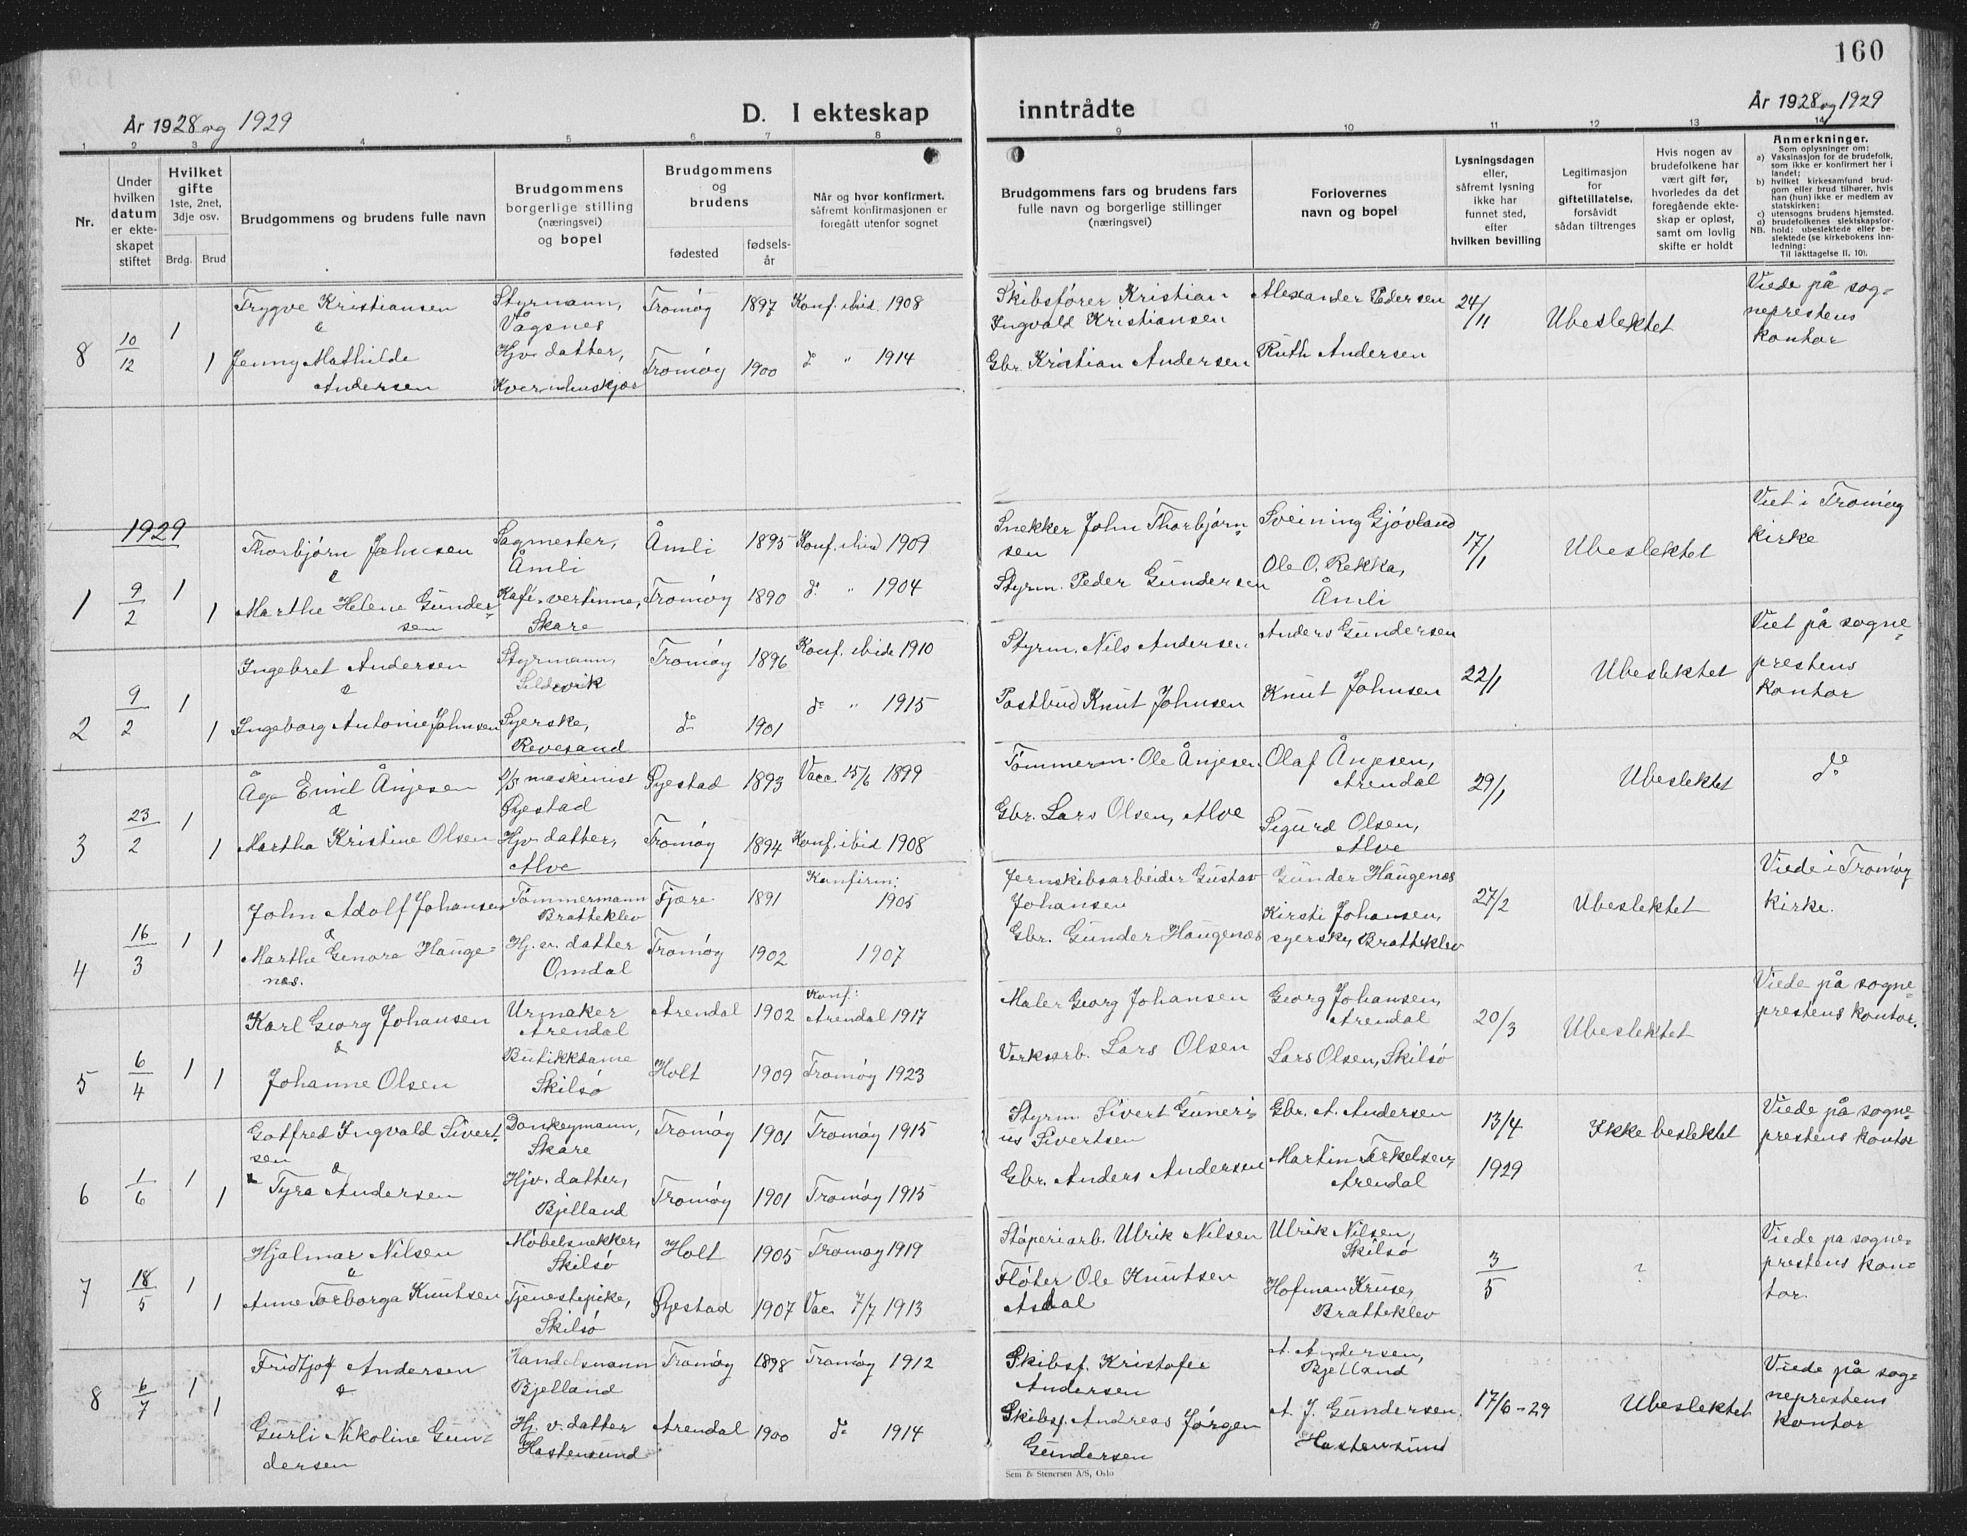 160
År 1928 og 1929
D. I ekteskap inntrådte
År 1928 og 1929
1 2 3 4 5 6 7 8 9 10 11 12 13 14
Nr.
Under hvilken datum er ekteskapet stiftet
Hvilket gifte 1ste, 2net, 3dje osv.
Brdg. Brud
Brudgommens og brudens fulle navn
Brudgommens borgerlige stilling (næringsvei) og bopel
Brudgommens og brudens
fødested
fødselsår
Når og hvor konfirmert, såfremt konfirmasjonen er foregått utenfor sognet
Brudgommens fars og brudens fars fulle navn og borgerlige stillinger (næringsvei)
Forlovernes navn og bopel
Lysningsdagen eller, såfremt lysning ikke har funnet sted, efter hvilken bevilling
Legitimasjon for giftetillatelse, forsåvidt sådan tiltrenges
Hvis nogen av brudefolkene har vært gift før, hvorledes da det foregående ekteskap er opløst, samt om lovlig skifte er holdt
Anmerkninger.
Som oplysninger om:
a) Vaksinasjon for de brudefolk, som ikke er konfirmert her i landet;
b) hvilket kirkesamfund brudgom eller brud tilhører, hvis han (hun) ikke er medlem av statskirken;
c) utensogns brudens hjemsted.
d) brudefolkenes slektskapsforhold: ubeslektede eller beslektede (se kirkebokens innledning:
NB.
Til iakttagelse II, 10).
8 10/12 1 Trygve Kristiansen Styrmann, Vågsnes Tromøy 1897 Konf. ibid. 1908 Skibsfører Kristian Ingvald Kristiansen Alexander Pedersen 24/11 Ubeslektet Viede på sogneprestens kontor
&
1 Jenny Mathilde Andersen Hjv. datter, Kvernhuskjær Tromøy 1900 do " 1914 Gbr. Kristian Andersen Ruth Andersen
1929
1 9/2 1 Thorbjørn Johnsen Sagmester, Åmli Åmli 1895 Konf. ibid 1909 Snekker John Thorbjørnsen Sveining Gjøvland 17/1 Ubeslektet Viet i Tromøy kirke
&
1 Marthe Helene Gundersen Kafé-vertinne, Skare Tromøy 1890 do " 1904 Styrm. Peder Gundersen Ole O. Rekka, Åmli
2 9/2 1 Ingebret Andersen Styrmann, Sildevik Tromøy 1896 Konf. ibide 1910 Styrm. Nils Andersen Anders Gundersen 22/1 Ubeslektet Viet på sogneprestens kontor
&
1 Ingeborg Antonie Johnsen Syerske, Revesand do 1901 do " 1915 Postbud Knut Johnsen Knut Johnsen
3 23/2 1 Åge Emil Ånjesen D/S maskinist Øyestad Øyestad 1893 Vacc. 15/6 1899 Tømmerm. Ole Ånjesen Olaf Ånjesen, Arendal 29/1 Ubeslektet do
&
1 Martha Kristine Olsen Hjv. datter, Alve Tromøy 1894 Konf. ibid 1908 Gbr. Lars Olsen, Alve Sigurd Olsen, Alve
4 16/3 1 John Adolf Johansen Tømmermann Bratteklev Fjære 1891 Konfirm: 1905 Jernskibsarbeider Gustav Johansen Gunder Haugenæs 27/2 Ubeslektet Viede i Tromøy kirke.
&
1 Marthe Genora Haugenæs. Hj. v. datter Omdal Tromøy 1902 1907 Gbr. Gunder Haugenæs Kirsti Johansen, syerske, Bratteklev
5 6/4 1 Karl Georg Johansen Urmaker Arendal Arendal 1902 Konf: Arendal 1917 Maler Georg Johansen Georg Johansen, Arendal 20/3 Ubeslektet Viede på sogneprestens kontor.
&
1 Johanne Olsen Butikkdame Skilsø Holt 1909 Tromøy 1923 Verksarb. Lars Olsen Lars Olsen, Skilsø
6 1/6 1 Gotfred Ingvald Sivertsen Donkeymann, Skare Tromøy 1901 Tromøy 1915 Styrm. Sivert Gunerius Sivertsen Gbr. A. Andersen 13/4 1929 Ikke beslektet Viede på sogneprestens kontor
&
1 Tyra Andersen Hjv. datter, Bjelland Tromøy 1901 Tromøy 1915 Gbr. Anders Andersen Martin Terkelsen, Arendal
7 18/5 1 Hjalmar Nilsen Møbelsnekker, Skilsø Holt 1905 Tromøy 1919 Støperiarb. Ulrik Nilsen Ulrik Nilsen, Skilsø 3/5 ? Viede på sogneprestens kontor
&
1 Anne Torborga Knutsen Tjenestepike, Skilsø Øyestad 1907 Vac. 7/7 1913 Fløter Ole Knutsen Asdal Hofman Kruse, Bratteklev
8 6/7 1 Fridtjof Andersen Handelsmann Bjelland Tromøy 1898 Tromøy 1912 Skibsf. Kristofer Andersen A. Andersen, Bjelland 17/6-29 Ubeslektet Viede på sogneprestens kontor
&
1 Gurli Nikoline Gundersen Hj. v. datter Hastensund Arendal 1900 do 1914 Skibsf. Andreas Jørgen Gundersen A. J. Gundersen, Hastensund
Sem & Stenersen A/S, Oslo